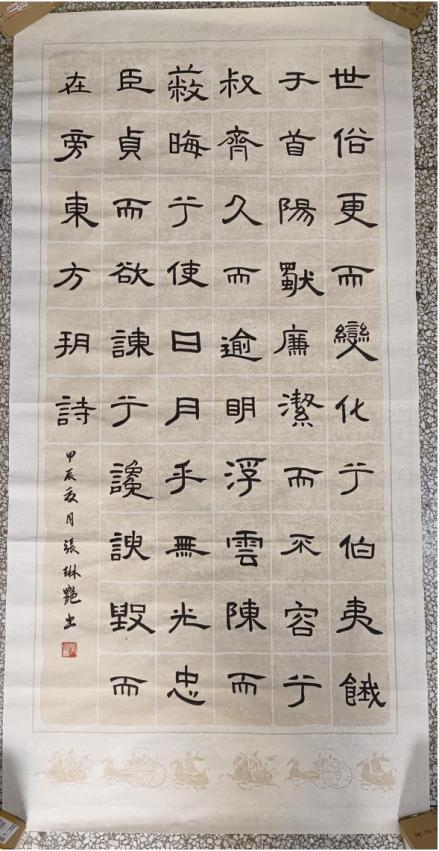 世俗更而變化兮伯夷餓
于首陽獨廉潔而不容兮
叔齊久而逾明浮雲陳而
蔽晦兮使日月乎無光忠
臣貞而欲諫兮讒諛毀而
在旁東方朔詩
甲辰夏月張琳艷书